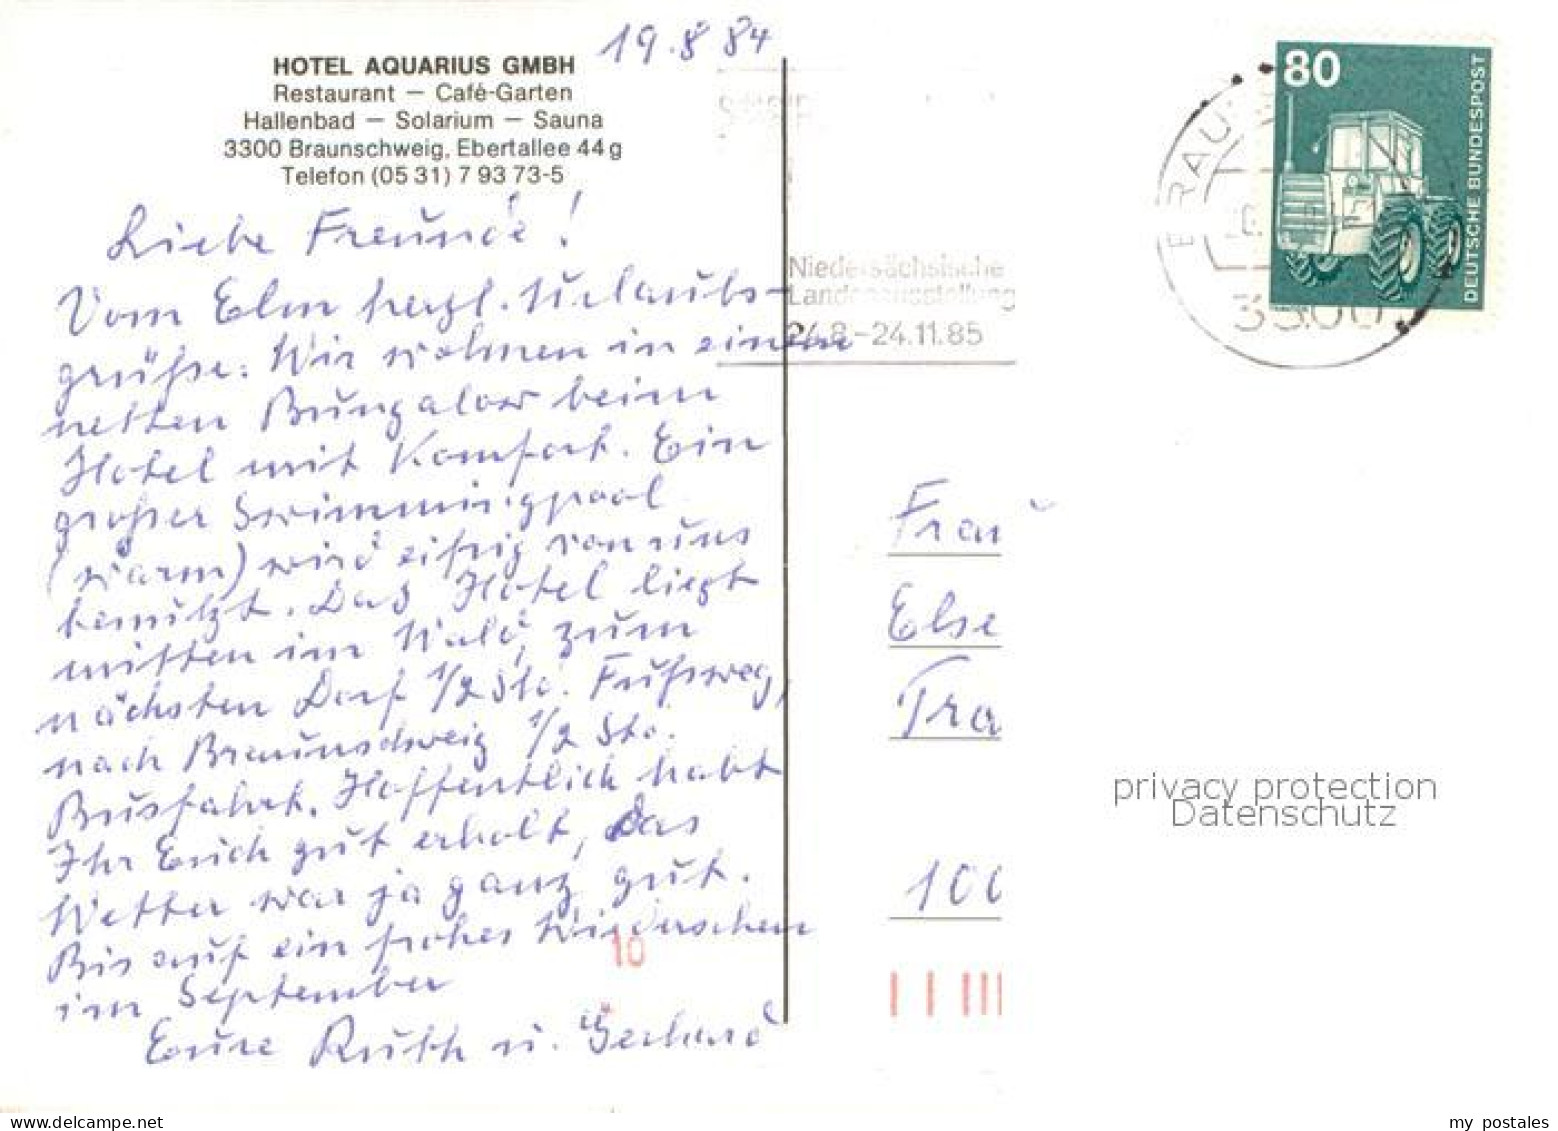 19.8 84
HOTEL AQUARIUS GMBH
Restaurant — Café-Garten
Hallenbad — Solarium — Sauna
3300 Braunschweig, Ebertallee 44 g
Telefon (05 31) 7 93 73-5
Liebe Freunde!
Vom Elm herzl. Urlaubs-
grüße. Wir wohnen in einem
netten Bungalow beim
Hotel mit Komfort. Ein
großer Swimmingpool
(warm) wird eifrig von uns
benützt. Das Hotel liegt
mitten im Wald, zum
nächsten Dorf 1/2 Std. Fußweg,
nach Braunschweig 1/2 Std.
Busfahrt. Hoffentlich habt
Ihr Euch gut erholt, das
Wetter war ja ganz gut.
Bis auf ein frohes Wiedersehen
im September
Eure Ruth u. Gerhard
10
Niedersächsische
Landesausstellung
24.8-24.11.85
BRAU
3300
80
DEUTSCHE BUNDESPOST
Frau
Else
Tra
100
privacy protection
Datenschutz
my postales